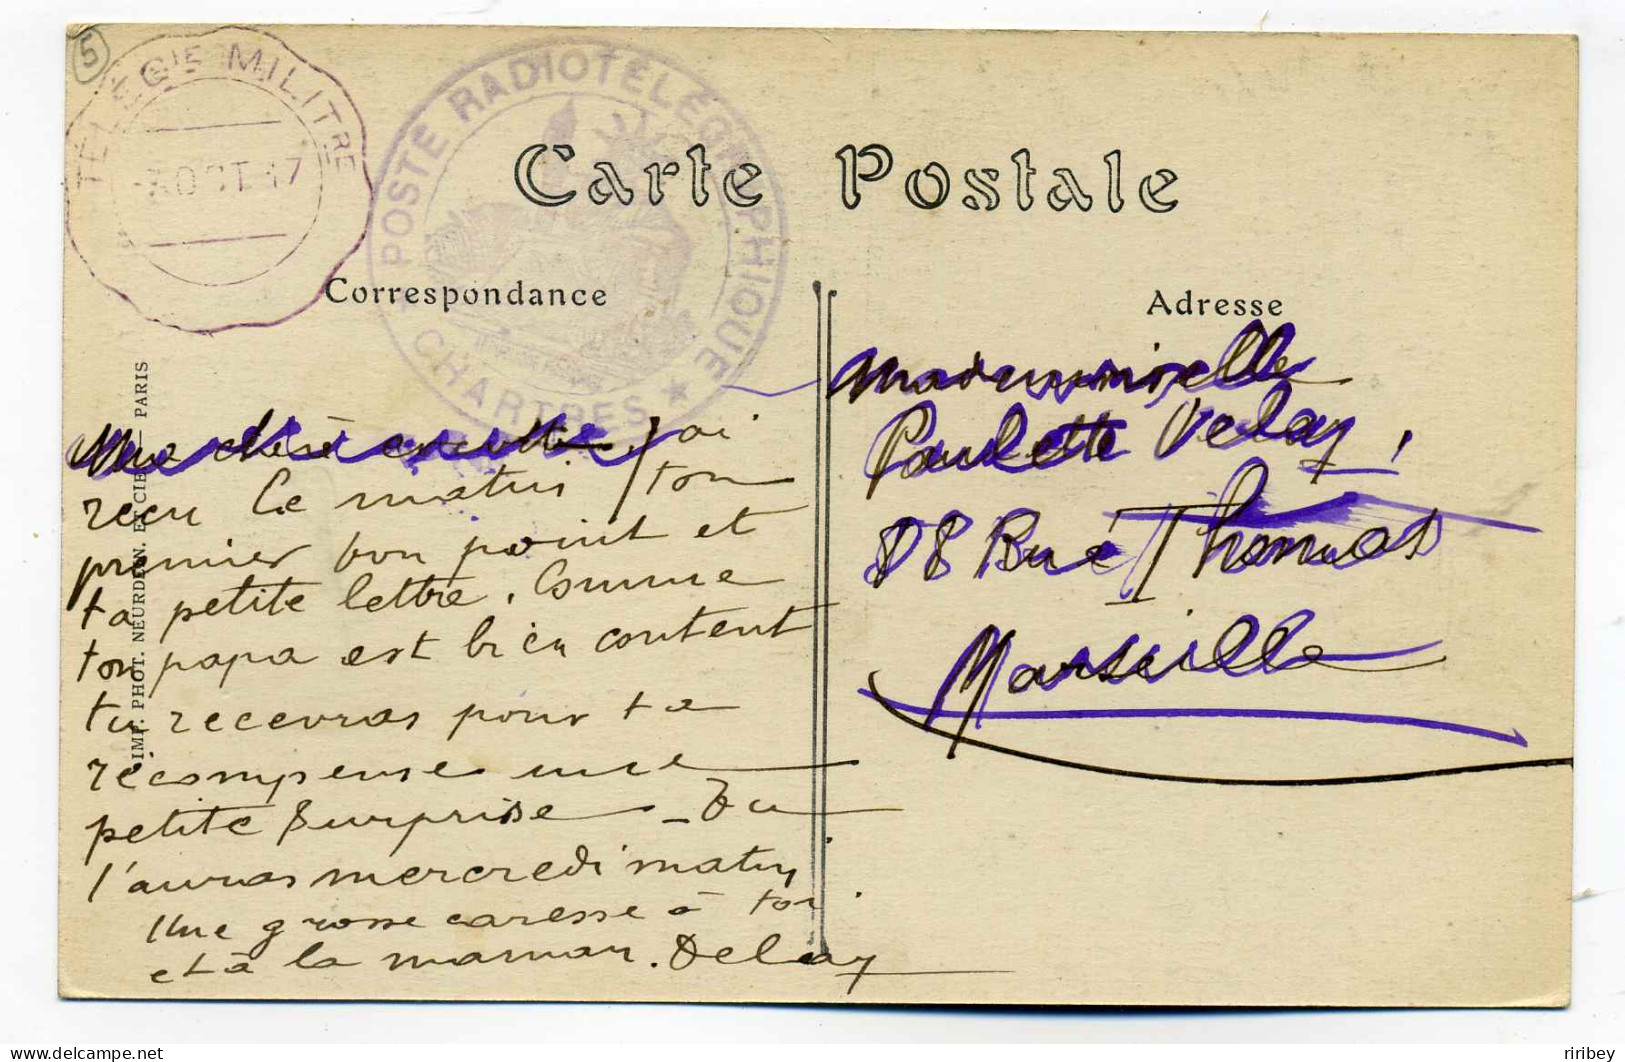 5
TELEGIE MILITRE
OCT 17
POSTE RADIOTÉLÉGRAPHIQUE
★ CHARTRES ★
Carte Postale
Correspondance
Adresse
IMP. PHOT. NEURDEIN. ET CIE — PARIS
Ma chère cocotte, j'ai
reçu ce matin ton
premier bon point et
ta petite lettre. Comme
ton papa est bien content
tu recevras pour ta
récompense une
petite surprise - Tu
l'auras mercredi matin
Une grosse caresse à toi
et à la maman. Delay
Mademoiselle
Paulette Velay,
88 Rue Thomas
Marseille
riribey